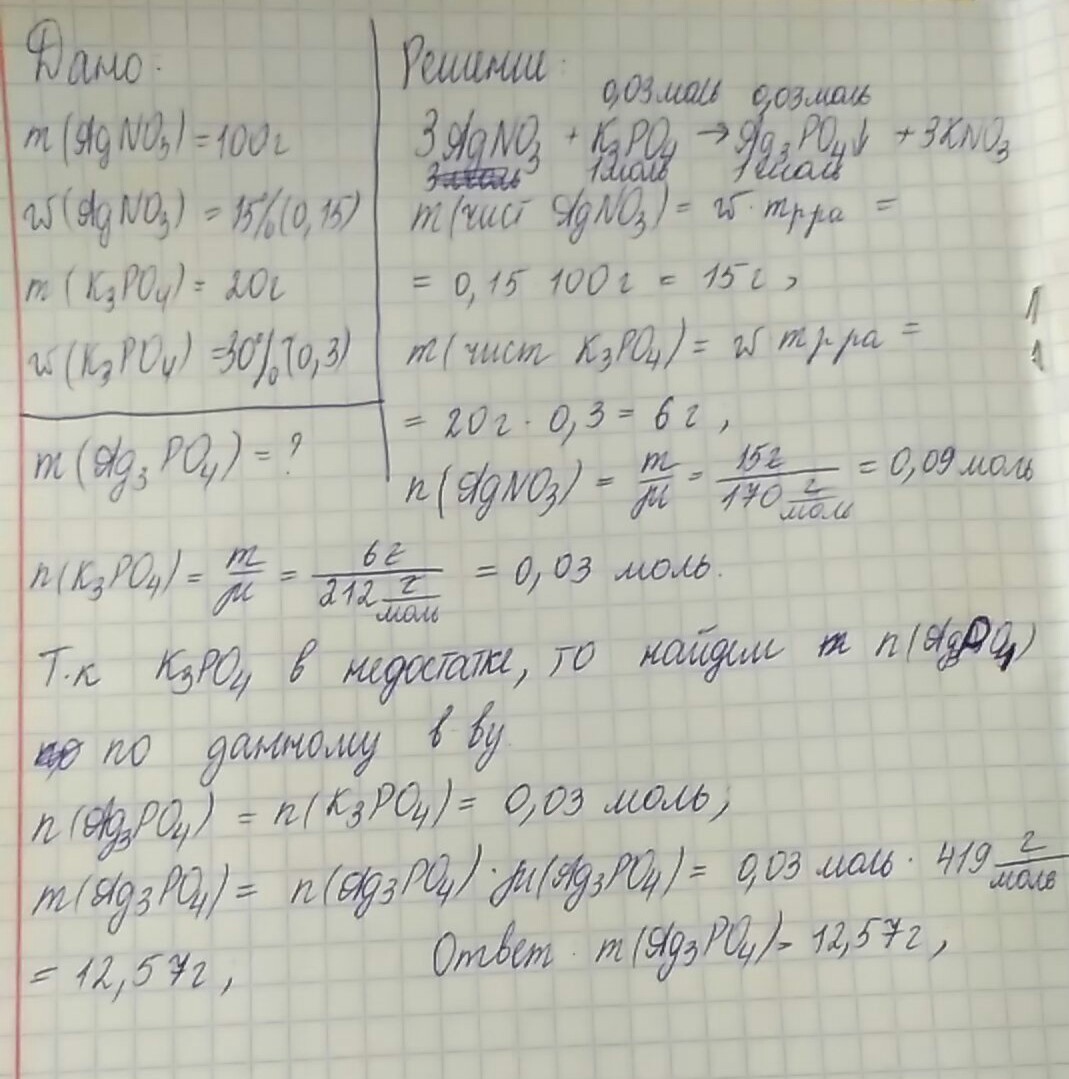 Дано:
m(AgNO₃) = 100г
w(AgNO₃) = 15%(0,15)
m(K₃PO₄) = 20г
w(K₃PO₄) = 30%(0,3)
m(Ag₃PO₄) = ?
Решение:
0,03 моль 0,03 моль
3AgNO₃ + K₃PO₄ → Ag₃PO₄↓ + 3KNO₃
1моль 1моль
m(чист AgNO₃) = w · mр-ра =
= 0,15 100г = 15г,
m(чист K₃PO₄) = w mр-ра =
= 20г · 0,3 = 6г,
n(AgNO₃) = m/μ = 15г/170 г/моль = 0,09 моль
n(K₃PO₄) = m/μ = 6г/212 г/моль = 0,03 моль.
Т.к K₃PO₄ в недостатке, то найдем m n(Ag₃PO₄)
по данному в-ву
n(Ag₃PO₄) = n(K₃PO₄) = 0,03 моль;
m(Ag₃PO₄) = n(Ag₃PO₄) · μ(Ag₃PO₄) = 0,03 моль · 419 г/моль
= 12,57г, Ответ: m(Ag₃PO₄) = 12,57г,